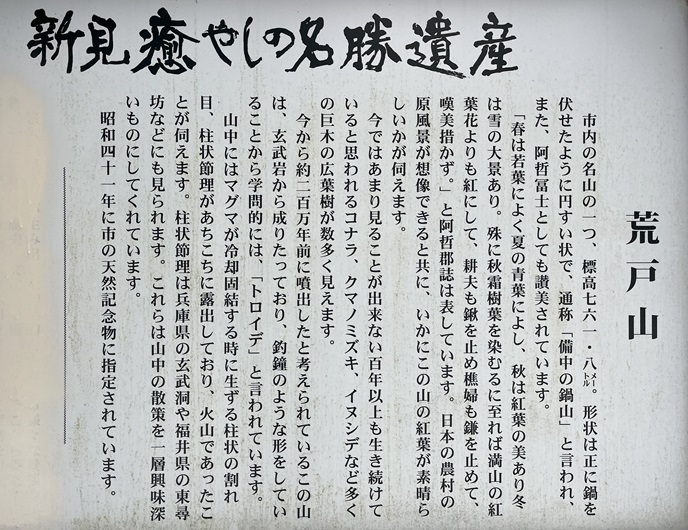 新見癒やしの名勝遺産
荒戸山
市内の名山の一つ、標高七六一・八メートル。形状は正に鍋を
伏せたように円すい状で、通称「備中の鍋山」と言われ、
また、阿哲冨士としても讃美されています。
「春は若葉によく夏の青葉によし、秋は紅葉の美あり冬
は雪の大景あり。殊に秋霜樹葉を染むるに至れば満山の紅
葉花よりも紅にして、耕夫も鍬を止め樵婦も鎌を止めて、
嘆美措かず。」と阿哲郡誌は表しています。日本の農村の
原風景が想像できると共に、いかにこの山の紅葉が素晴ら
しいかが伺えます。
今ではあまり見ることが出来ない百年以上も生き続けて
いると思われるコナラ、クマノミズキ、イヌシデなど多く
の巨木の広葉樹が数多く見えます。
今から約二百万年前に噴出したと考えられているこの山
は、玄武岩から成りたっており、釣鐘のような形をしてい
ることから学問的には、「トロイデ」と言われています。
山中にはマグマが冷却固結する時に生ずる柱状の割れ
目、柱状節理があちこちに露出しており、火山であったこ
とが伺えます。柱状節理は兵庫県の玄武洞や福井県の東尋
坊などにも見られます。これらは山中の散策を一層興味深
いものにしてくれています。
昭和四十一年に市の天然記念物に指定されています。